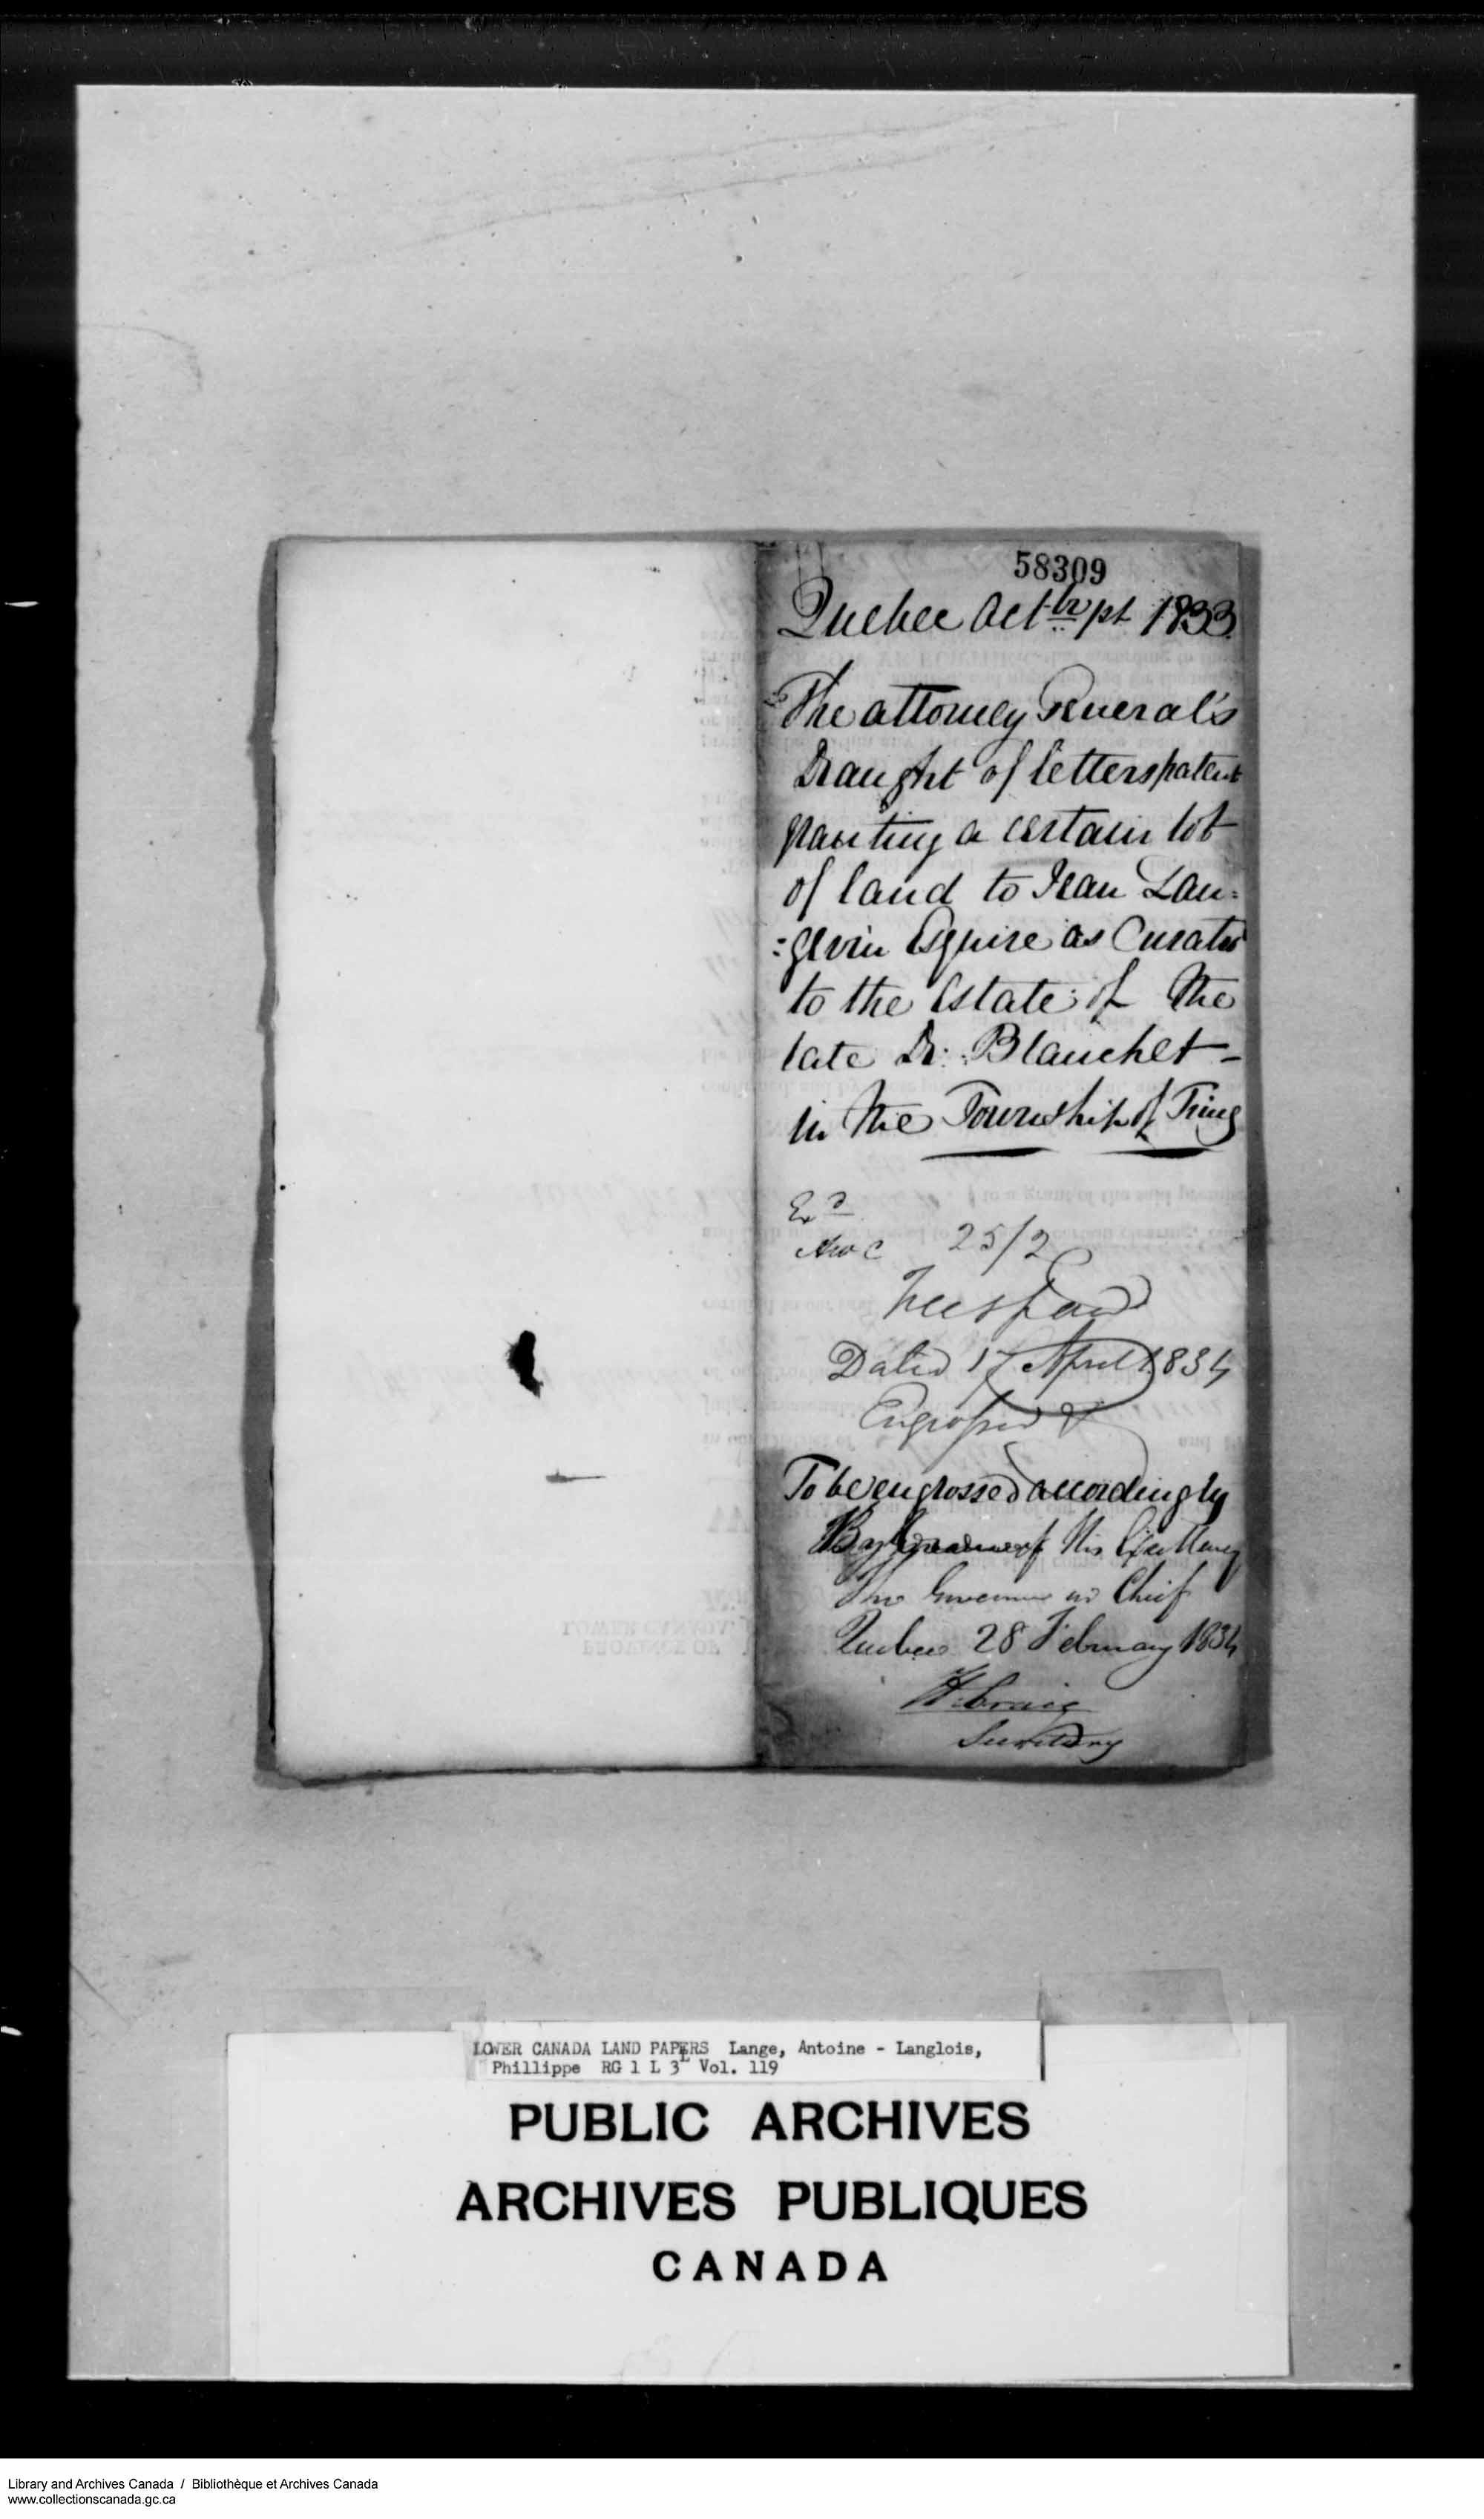 58309
Quebec Oct.br pt 1833.
The attorney General's
Draught of letters patent
granting a certain lot
of land to Jean Lan=
=gevin Esquire as Curator
to the Estate of the
late Dr. Blanchet -
in the Township of Tring
Exd
25/2
Fees paid
Dated 17 April 1834
Engrossed
To be engrossed accordingly
By Command of His Excellency
The Governor in Chief
Quebec 28 February 1834
H Craig
Secretary
PROVINCE OF
LOWER CANADA
LOWER CANADA LAND PAPERS Lange, Antoine - Langlois,
Phillippe RG 1 L 3L Vol. 119
PUBLIC ARCHIVES
ARCHIVES PUBLIQUES
CANADA
Library and Archives Canada / Bibliothèque et Archives Canada
www.collectionscanada.gc.ca